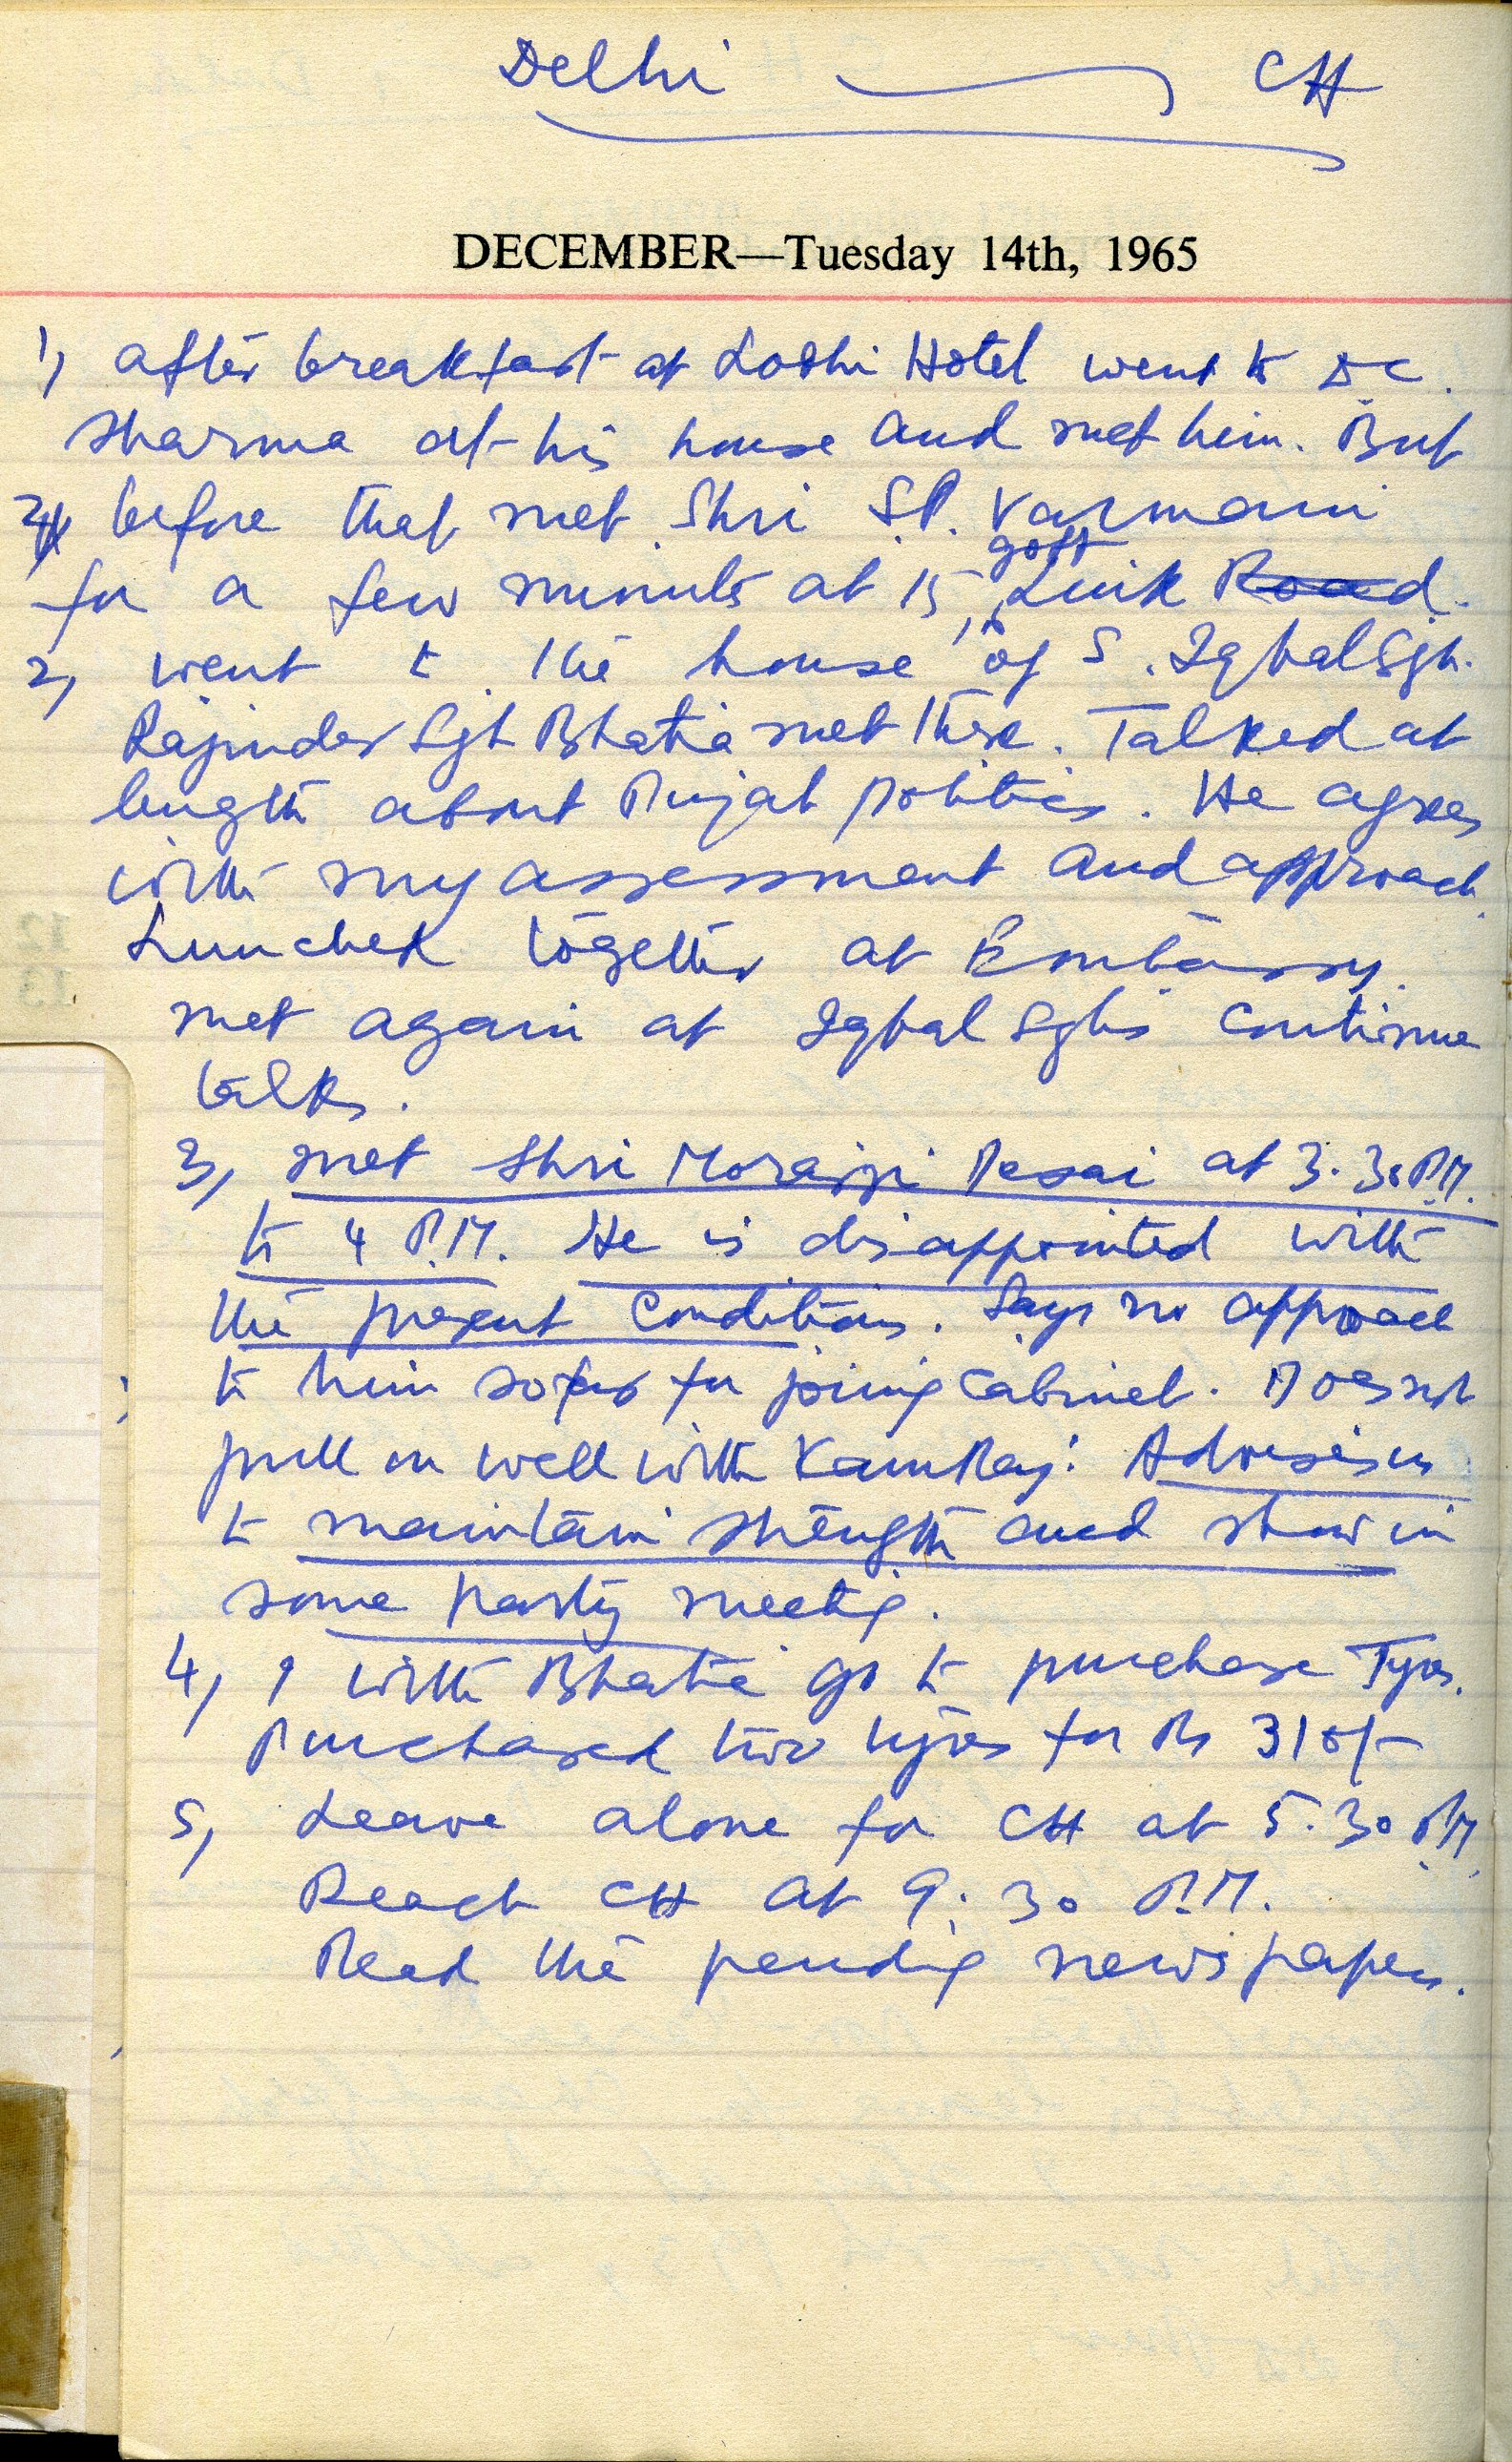 Delhi CH
DECEMBER—Tuesday 14th, 1965
1) After breakfast at Lodhi Hotel went to DC.
Sharma at his house and met him. But
before that met Shri S.P. Varmani
golf
for a few minutes at 15, Link Road.
2) went to the house of S. Iqbal Sgh.
Rajinder Sgh Bhatia met there. Talked at
length about Punjab politics. He agrees
with my assessment and approach.
Lunched together at Embassy.
met again at Iqbal Sghs continue
talks.
3) met Shri Morarji Desai at 3.30 P.M.
to 4 P.M. He is disappointed with
the present conditions. Says no approach
to him so far for joining cabinet. Does not
pull on well with KamRaj. Advises us
to maintain strength and show in
some party meeting.
4) I with Bhatia go to purchase Tyres.
Purchased two tyres for Rs 310/-
5) Leave alone for CH at 5.30 P.M.
Reach CH at 9.30 P.M.
Read the pending newspapers.